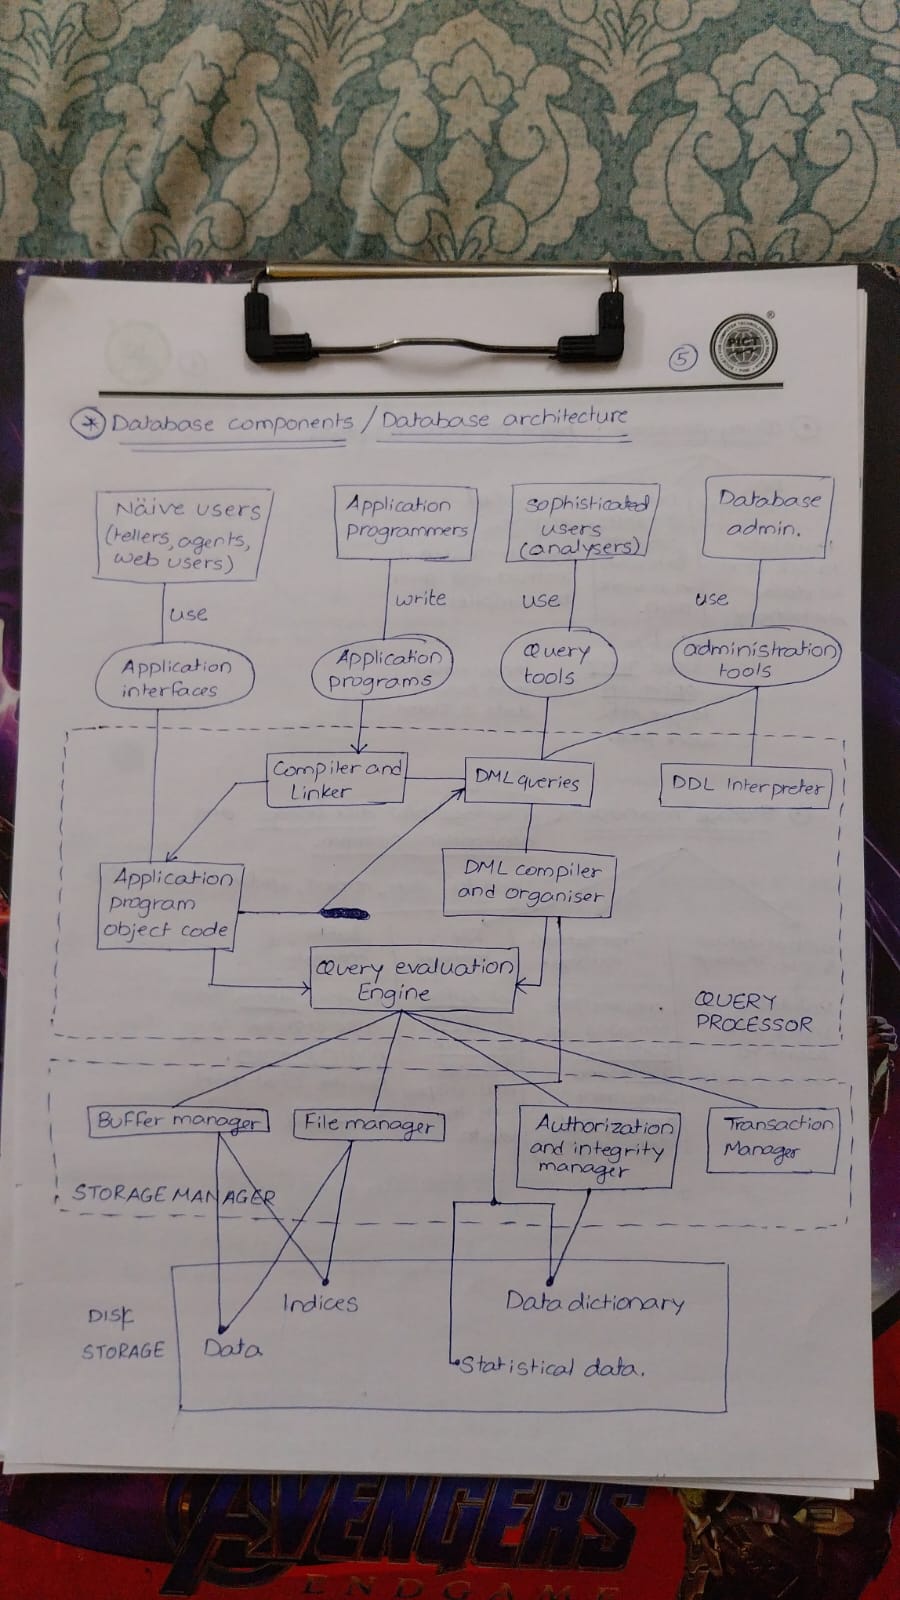 5
PICT
Database components / Database architecture
Näive users
(tellers, agents,
web users)
Application
programmers
sophisticated
users
(analysers)
Database
admin.
use
write
use
use
Application
interfaces
Application
programs
Query
tools
administration
tools
Compiler and
Linker
DML queries
DDL Interpreter
Application
program
object code
DML compiler
and organiser
Query evaluation
Engine
QUERY
PROCESSOR
Buffer manager
File manager
Authorization
and integrity
manager
Transaction
Manager
STORAGE MANAGER
DISK
STORAGE
Indices
Data dictionary
Data
Statistical data.
AVENGERS
ENDGAME